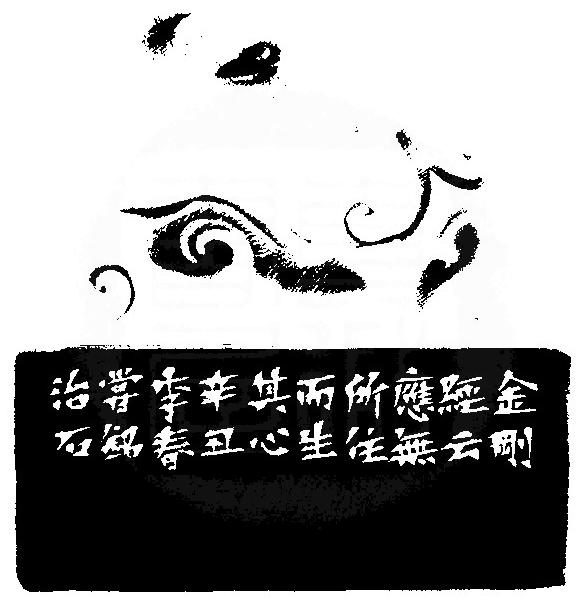 金剛
經云
應無
所住
而生
其心
辛丑
季春
治石